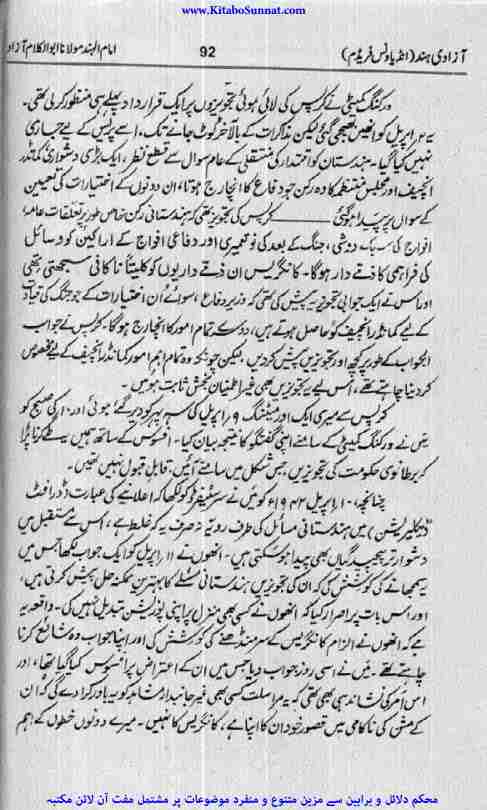 www.KitaboSunnat.com
آزادی ہند (انڈیا ونس فریڈم) 92 امام الہند مولانا ابوالکلام آزاد
ورکنگ کمیٹی نے کرپس کی لائی ہوئی تجویزوں پر ایک قرارداد پہلے ہی منظور کر لی تھی۔
یہ ۲ اپریل کو انھیں بھیجی گئی لیکن مذاکرات کے بالآخر ٹوٹ جانے تک، اسے پریس کے لیے جاری
نہیں کیا گیا۔ ہندستان کو اقتدار کی منتقلی کے عام سوال سے قطع نظر، ایک بڑی دشواری کمانڈر
انچیف اور مجلس منتظمہ کا وہ رکن جو دفاع کا انچارج ہوتا، ان دونوں کے اختیارات کی تعیین
کے سوال پر پیدا ہوگئی۔ کرپس کی تجویز تھی کہ ہندستانی رکن خاص طور پر تعلقات عامہ،
افواج کی سبک دوشی، جنگ کے بعد کی نو تعمیری اور دفاعی افواج کے اراکین کو وسائل
کی فراہمی کا ذمے دار ہوگا۔ کانگریس ان ذمے داریوں کو کلیتاً ناکافی سمجھتی تھی
اور اس نے ایک جوابی تجویز یہ پیش کی تھی کہ وزیر دفاع، سوائے اُن اختیارات کے جو جنگ کی قیادت
کے لیے کمانڈر انچیف کو حاصل ہونے ہیں، دوسرے تمام امور کا انچارج ہوگا۔ کرپس نے جواب
الجواب کے طور پر کچھ اور تجویزیں پیش کر دیں، لیکن چونکہ وہ تمام اہم امور کمانڈر انچیف کے لیے مخصوص
کر دینا چاہتے تھے، اس لیے یہ تجویزیں بھی غیر اطمینان بخش ثابت ہوئیں۔
کرپس سے میری ایک اور میٹنگ ۹ اپریل کی سہ پہر کو دیر گئے ہوئی اور ۱۰ کی صبح کو
میں نے ورکنگ کمیٹی کے سامنے اپنی گفتگو کا نتیجہ بیان کیا۔ افسوس کے ساتھ ہمیں یہ طے کرنا پڑا
کہ برطانوی حکومت کی تجویزیں، جس شکل میں سامنے آئیں، قابل قبول نہیں تھیں۔
چنانچہ، ۱۰ اپریل ۱۹۴۲ء کو میں نے سر سٹیفرڈ کو لکھا کہ اعلانیے کی عبارت (ڈرافٹ
ڈیکلریشن) میں ہندستانی مسائل کی طرف رویہ نہ صرف یہ کہ غلط ہے، اس سے مستقبل میں
دشوار تر پیچیدگیاں بھی پیدا ہو سکتی ہیں۔ انھوں نے ۱۱ اپریل کو ایک جواب لکھا جس میں
یہ سمجھانے کی کوشش کی کہ ان کی تجویزیں ہندستانی مسئلے کا بہترین ممکنہ حل پیش کرتی ہیں،
اور اس بات پر اصرار کیا کہ انھوں نے کسی بھی منزل پر اپنی پوزیشن تبدیل نہیں کی۔ واقعہ یہ
ہے کہ انھوں نے الزام کانگریس کے سر منڈھنے کی کوشش کی اور اپنا جواب وہ شائع کرنا
چاہتے تھے۔ میں نے اسی روز جواب دیا جس میں ان کے اعتراض پر افسوس کیا گیا تھا، اور
اس امر کی نشاندہی بھی تھی کہ یہ مراسلت کسی بھی غیر جانبدار مشاہد کو یہ باور کرا دے گی کہ ان
کے مشن کی ناکامی میں قصور خود ان کا اپنا ہے، کانگریس کا نہیں۔ میرے دونوں خطوں کے اہم
محکم دلائل و براہین سے مزین متنوع و منفرد موضوعات پر مشتمل مفت آن لائن مکتبہ